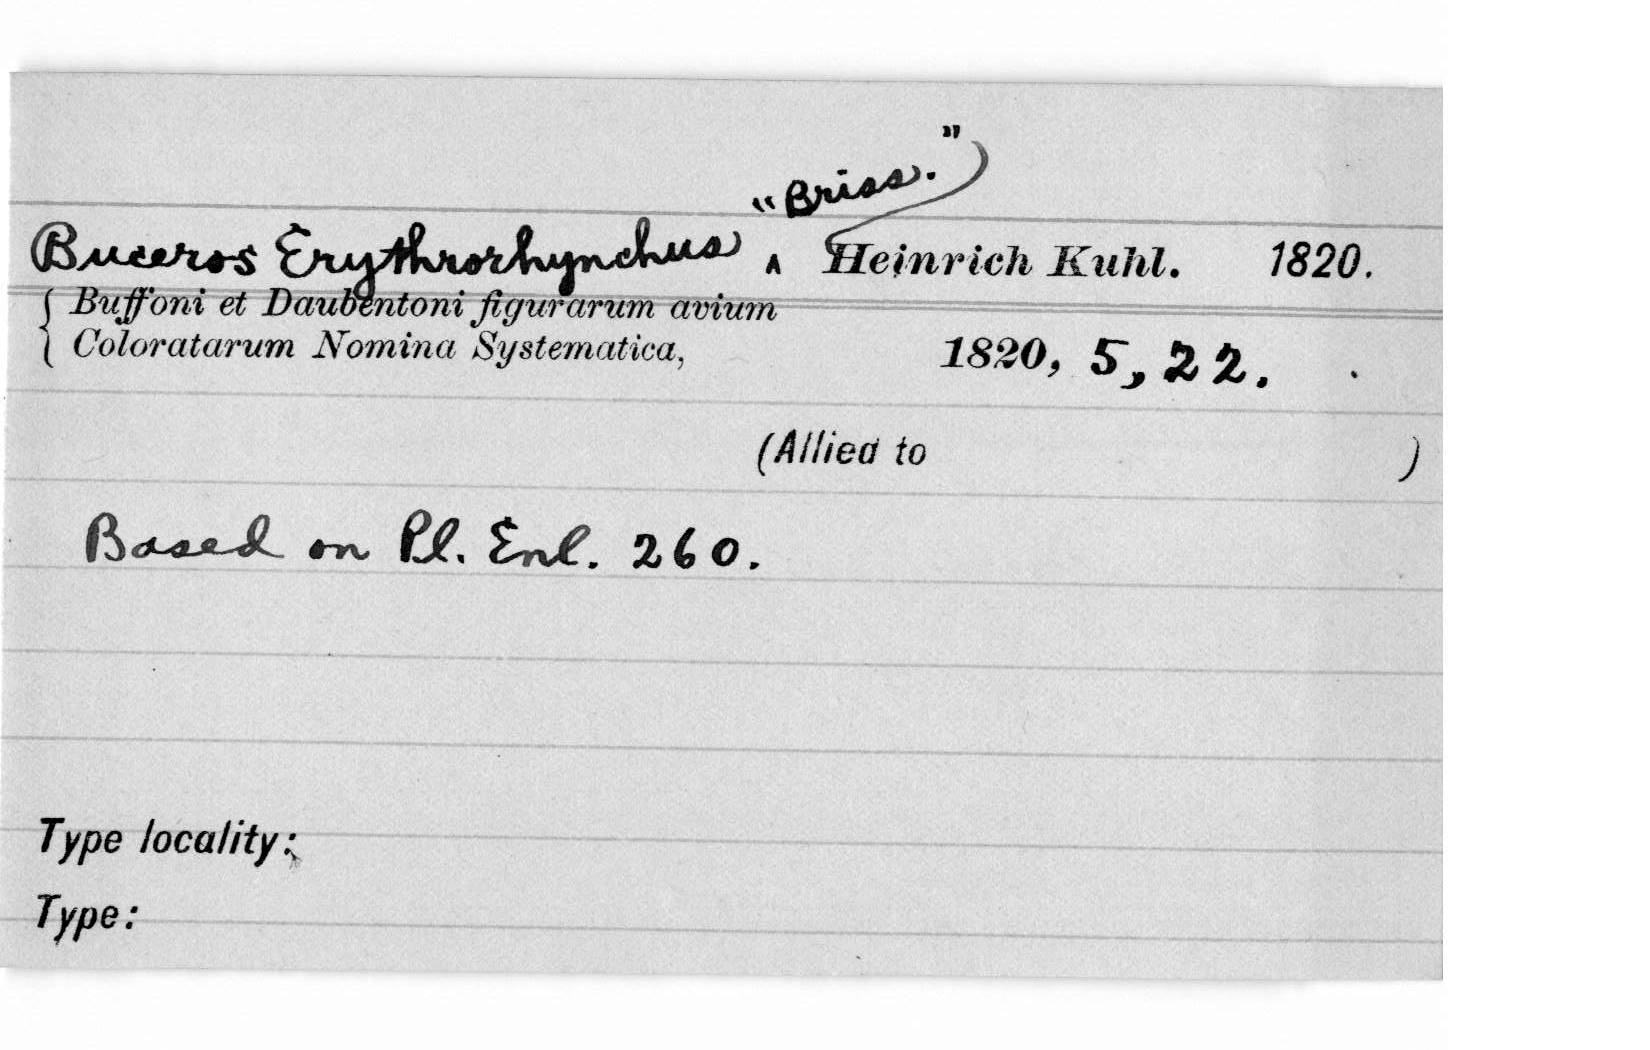 "Briss."
Buceros Erythrorhynchus ʌ Heinrich Kuhl. 1820.
Buffoni et Daubentoni figurarum avium
Coloratarum Nomina Systematica, 1820, 5, 22.
(Allied to )
Based on Pl. Enl. 260.
Type locality:
Type: